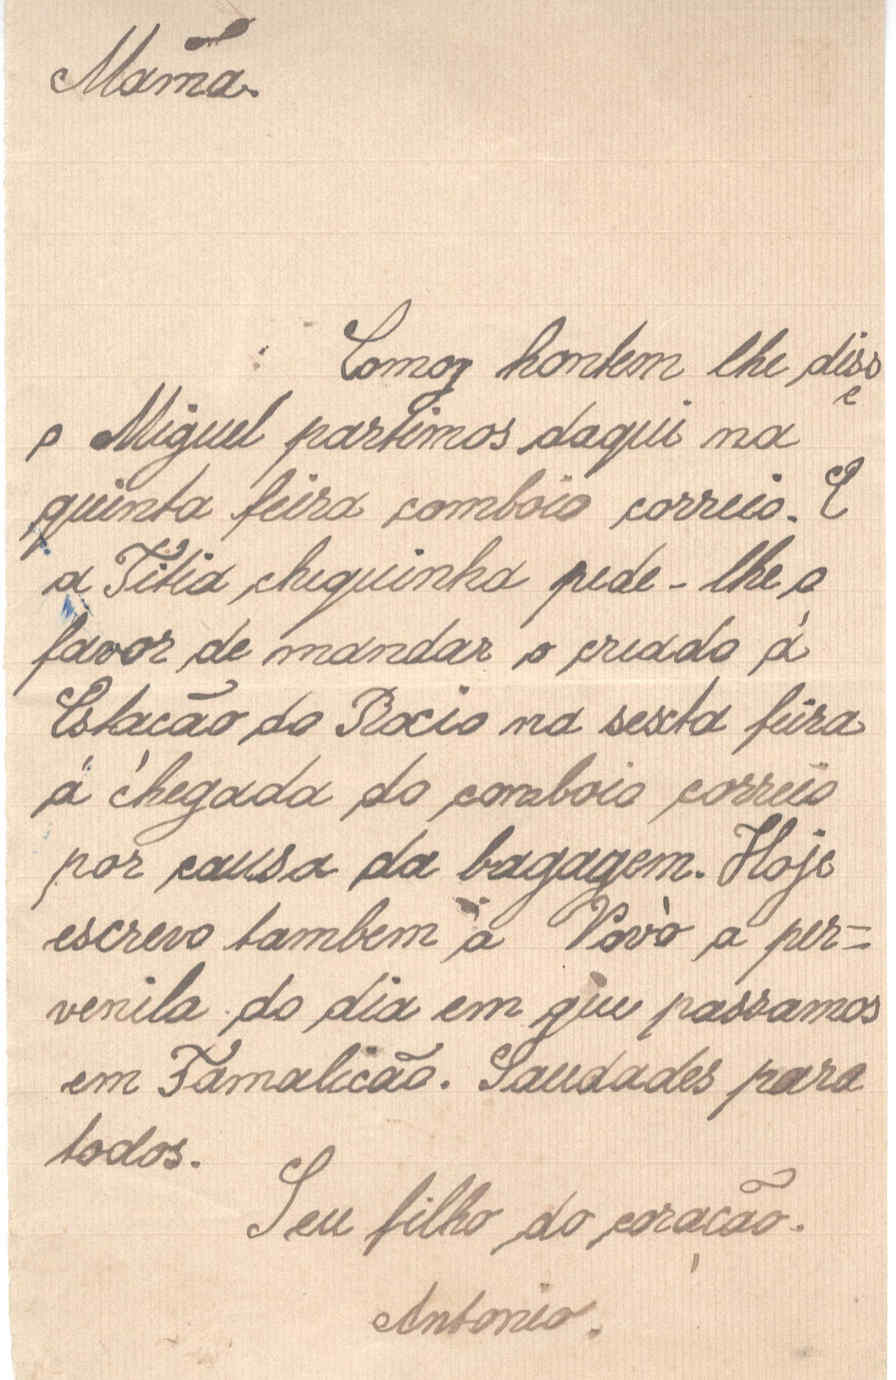 Mamã.
Como hontem lhe disse
o Miguel partimos daqui na
quinta feira comboio correio. E
a Titia chiquinha pede-lhe o
favor de mandar o creado á
Estacão do Rocio na sexta feira
á chegada do comboio correio
por causa da bagagem. Hoje
escrevo tambem á Vovò a per=
venila do dia em que passamos
em Famalicão. Saudades para
todos.
Seu filho do coração.
Antonio.